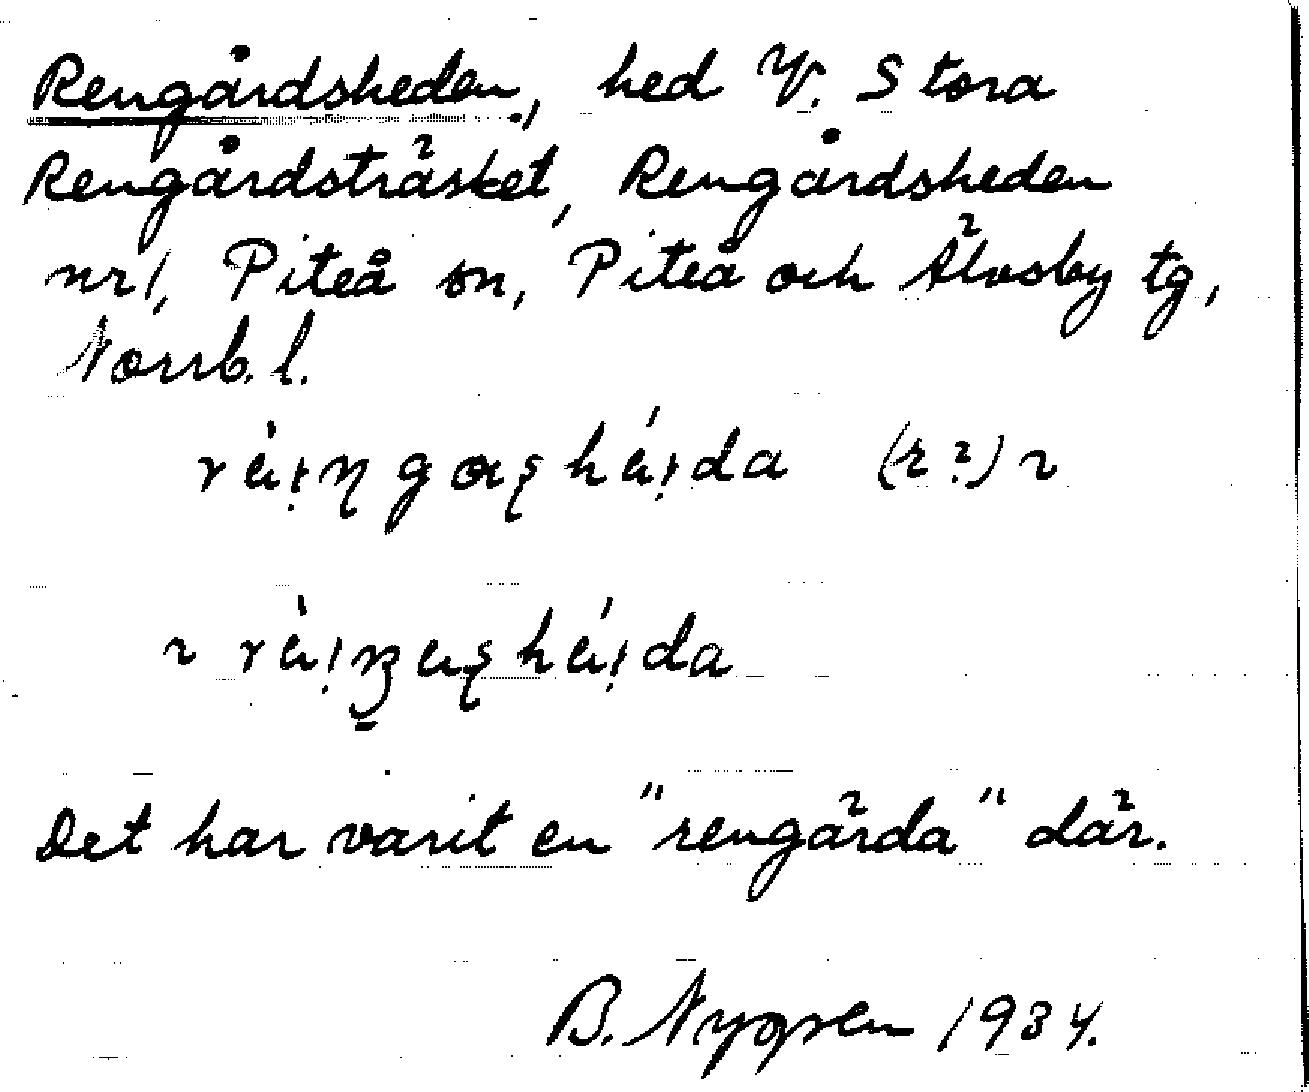 Rengårdsheden, hed V. Stora
Rengårdsträsket, Rengårdsheden
nr 1, Piteå sn, Piteå och Älvsby tg,
Norrb. l.
(r?) ~
~
Det har varit en "rengärda" där.
B. Nygren 1934.